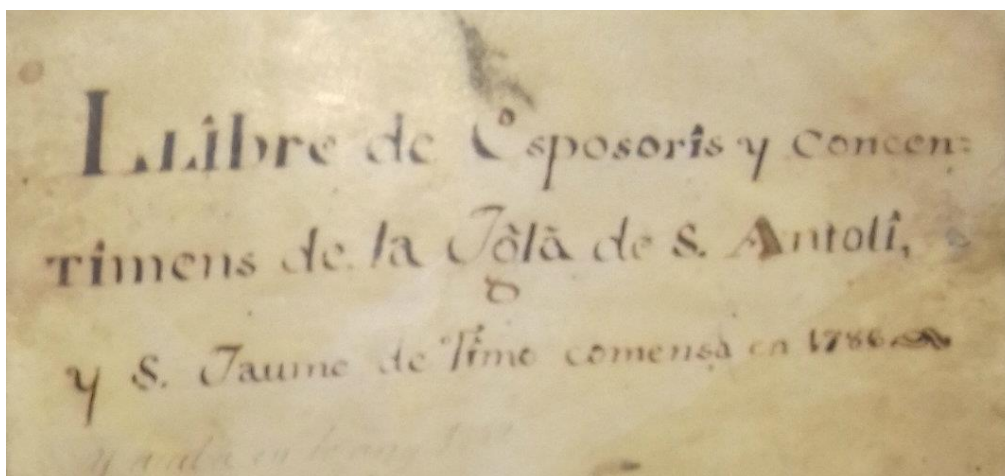 Llibre de Esposoris y Concen=
timens de la Iglã de S. Antoli,
y S. Jaume de Timo comensa en 1786
y